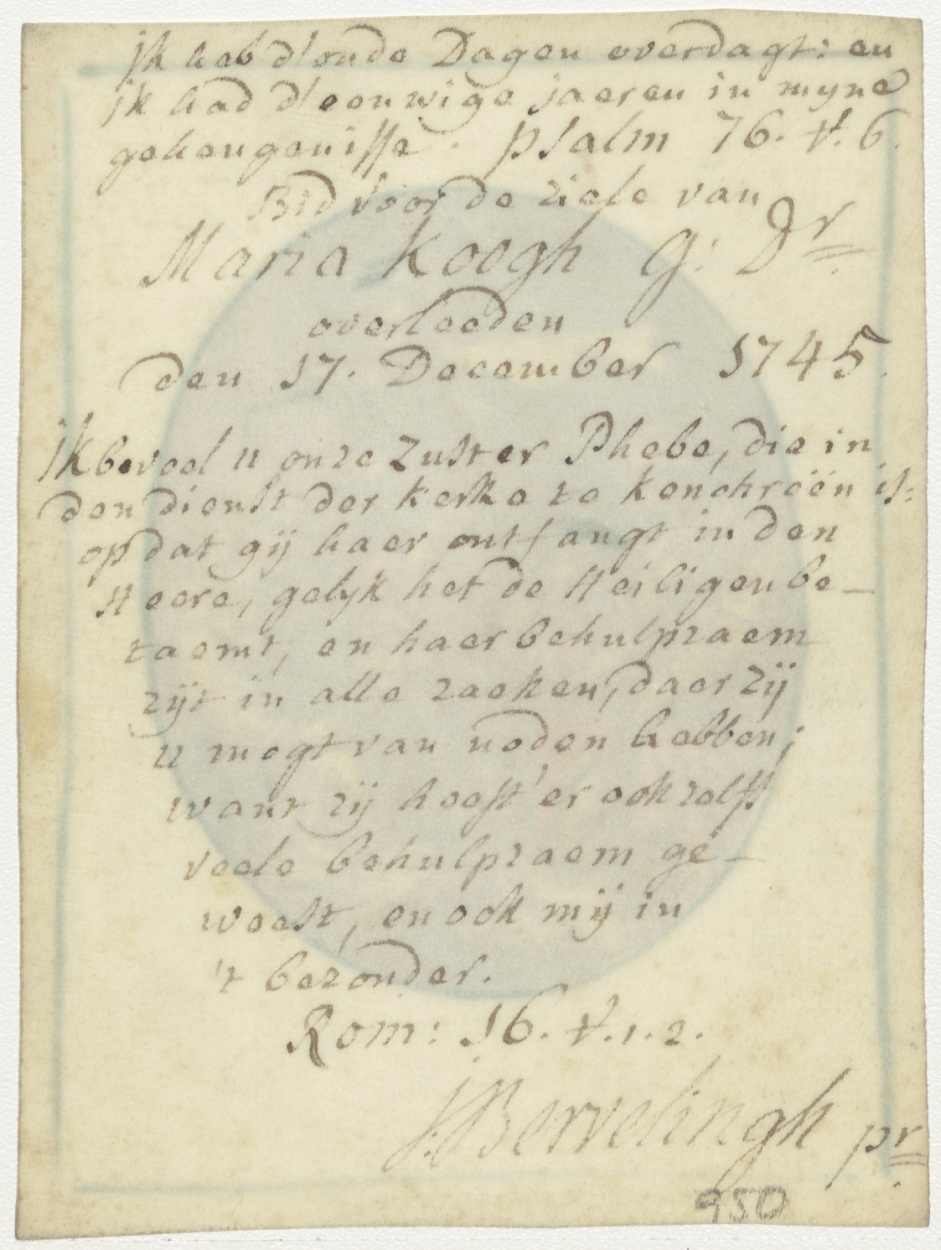 Ik heb d'oude Dagen overdagt: en
ik had d'eeuwige jaeren in myne
geheugenisse. psalm 76. v. 6.
Bid voor de ziele van
Maria Koogh G: Dr
overleeden
den 17. December 1745.
Ik beveel u onze Zuster Phebe, die in
den dienst der kerke te Kenchreën is:
op dat gij haer ontfangt in den
Heere, gelyk het de Heiligen be-
taemt, en haer behulpzaem
zijt in alle zaeken, daer zij
u mogt van noden hebben;
want zij heeft'er ook zelfs
veele behulpzaem ge-
weest, en ook mij in
't bezonder.
Rom: 16. v. 1. 2.
J. Bervelingh pr
950